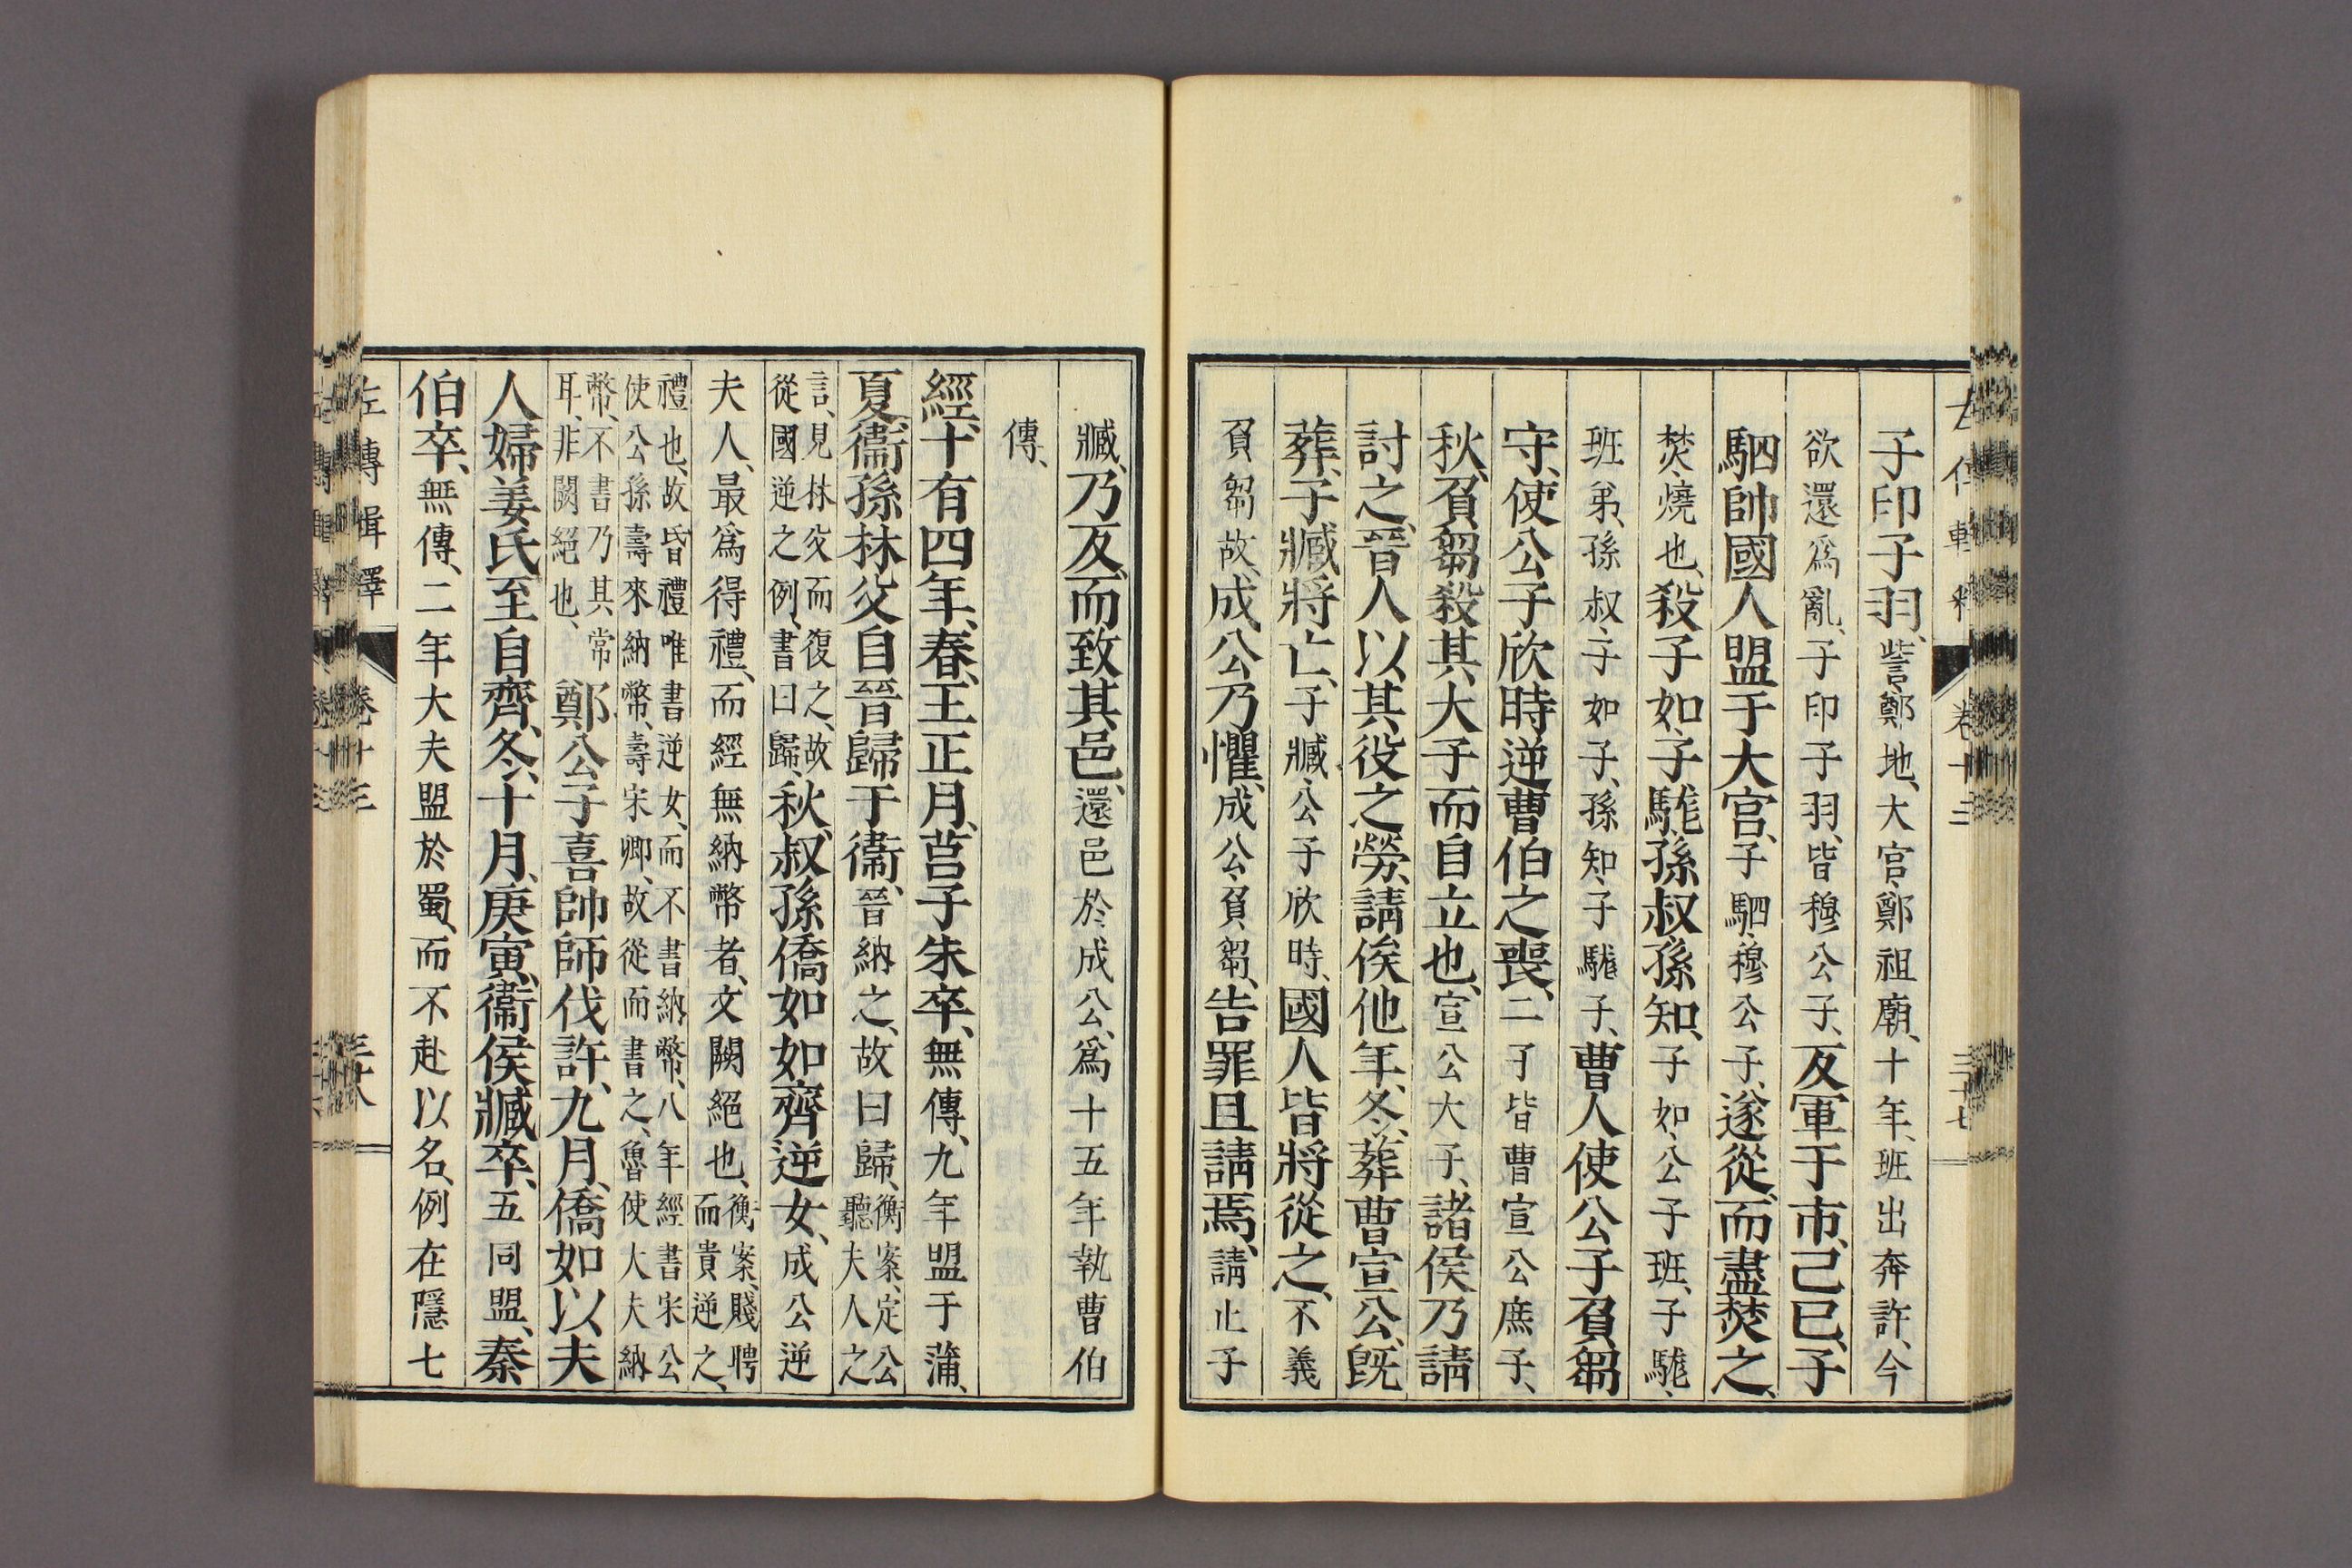 子印子羽、訾、鄭地、大宮、鄭祖廟、十年、班出奔許、今
欲還爲亂、子印子羽、皆穆公子、反軍于市、己巳、子
駟帥國人盟于大宮、子駟、穆公子、遂從、而盡焚之、
焚、燒也、殺子如、子駹、孫叔、孫知、子如、公子班、子駹、
班弟、孫叔、子如子、孫知、子駹子、曹人使公子負芻
守、使公子欣時逆曹伯之喪、二子皆曹宣公庶子、
秋、負芻殺其大子而自立也、宣公大子、諸侯乃請
討之、晉人以其役之勞、請俟他年、冬、葬曹宣公、既
葬、子臧將亡、子臧、公子欣時、國人皆將從之、不義
負芻故、成公乃懼、成公、負芻、告罪且請焉、請止子
左傳輯釋 卷十三 三十七
臧、乃反、而致其邑、還邑於成公、爲十五年執曹伯
傳、
經、十有四年、春、王正月、莒子朱卒、無傳、九年盟于蒲、
夏、衞孫林父自晉歸于衞、晉納之、故曰歸、衡案、定公
聽夫人之
言、見林父而復之、故
從國逆之例、書曰歸、秋、叔孫僑如如齊逆女、成公逆
夫人、最爲得禮、而經無納幣者、文闕絕也、衡案、賤聘
而貴逆之、
禮也、故昏禮唯書逆女、而不書納幣、八年經書宋公
使公孫壽來納幣、壽宋卿、故從而書之、魯使大夫納
幣、不書乃其常
耳、非闕絕也、鄭公子喜帥師伐許、九月、僑如以夫
人婦姜氏至自齊、冬、十月、庚寅、衞侯臧卒、五同盟、秦
伯卒、無傳、二年大夫盟於蜀、而不赴以名、例在隱七
左傳輯釋 卷十三 三十八